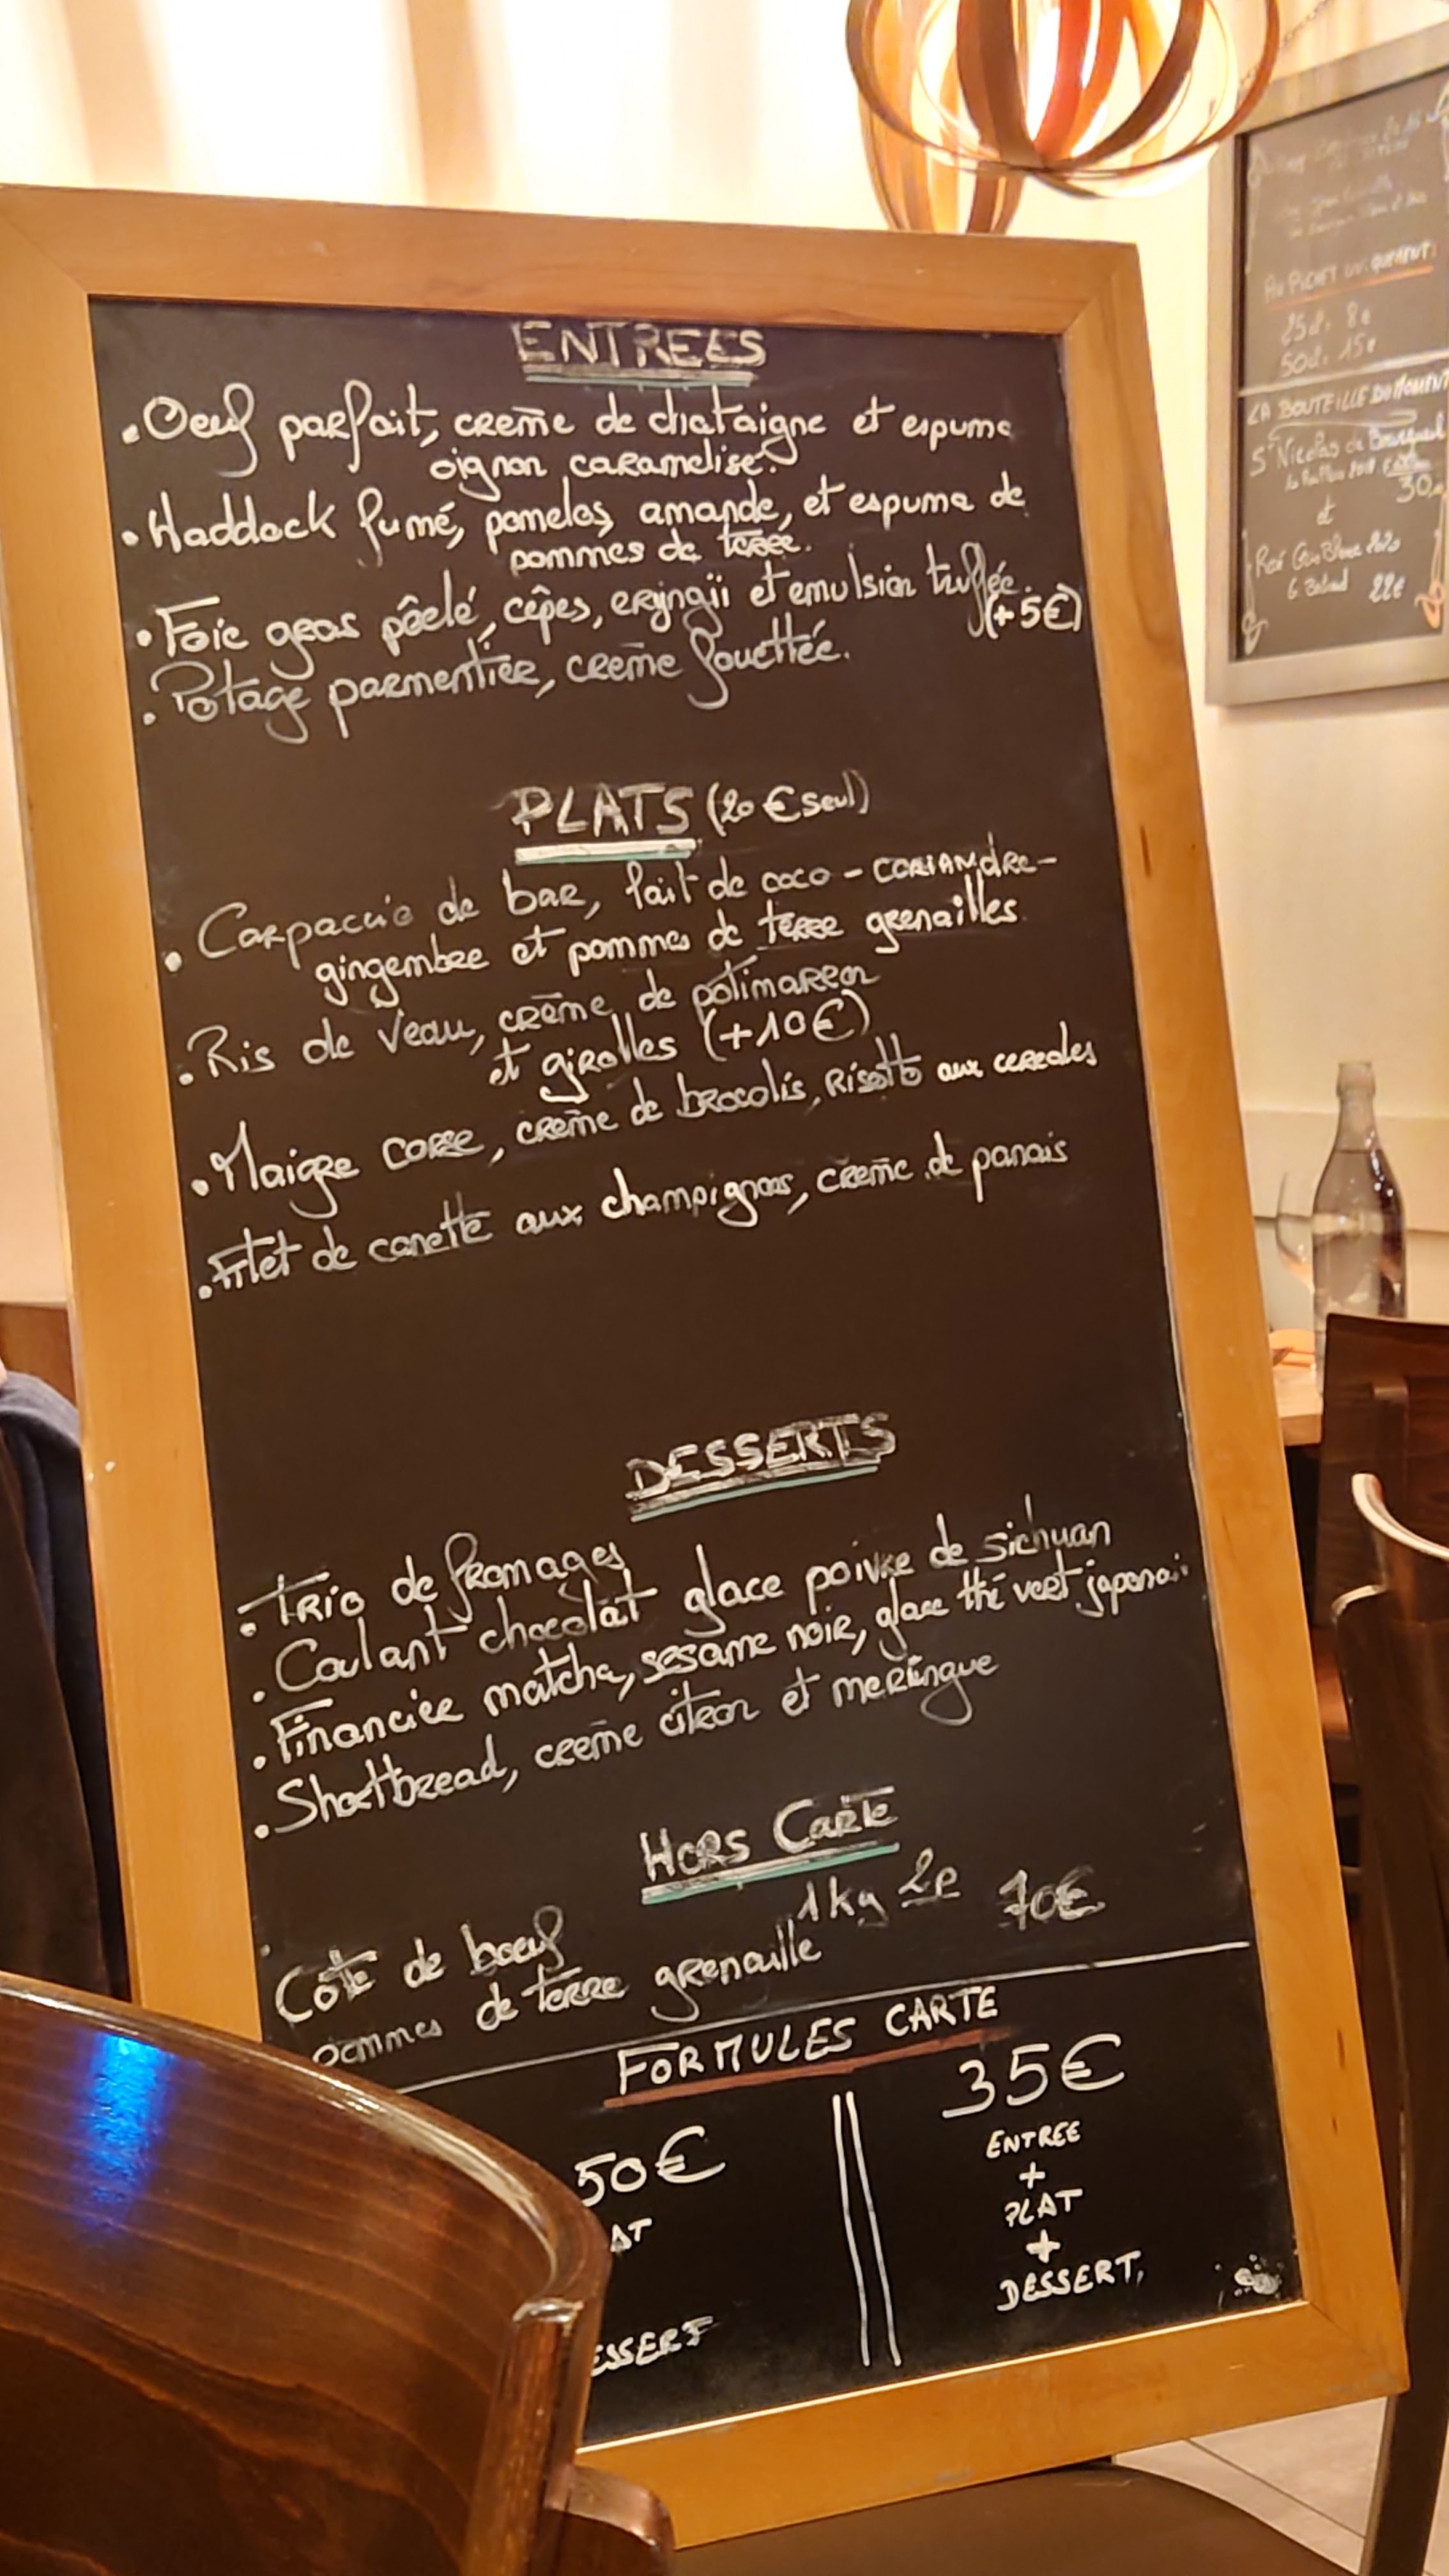 ENTREES
• Oeuf parfait, crème de chataigne et espuma
oignon caramelisé.
• Haddock fumé, pomelos, amande, et espuma de
pommes de terre.
• Foie gras pôelé, cêpes, eryngii et emulsion truffée.
(+5€)
• Potage parmentier, crème fouettée.
PLATS (20 € seul)
• Carpaccio de bar, lait de coco - CORIANdRe -
gingembre et pommes de terre grenailles
• Ris de veau, crème de potimarron
et girolles (+10€)
• Maigre corse, crème de brocolis, Risotto aux cereales
• Filet de canette aux champignons, crème de panais
DESSERTS
• Trio de fromages
• Coulant chocolat glace poivre de sichuan
• Financier matcha, sesame noir, glace thé vert japonais
• Shortbread, crème citron et meringue
HORS Carte
1kg 2p
Côte de boeuf 70€
pommes de terre grenaille
FORMULES CARTE
50€
AT
ESSERT
35€
ENTREE
+
PLAT
+
DESSERT,
AU PICHET UNIQUEMENT:
25cl. 8€
50cl. 15€
LA BOUTEILLE DU MOMENT
St Nicolas de Bourgueil
30
et
Rosé
22€